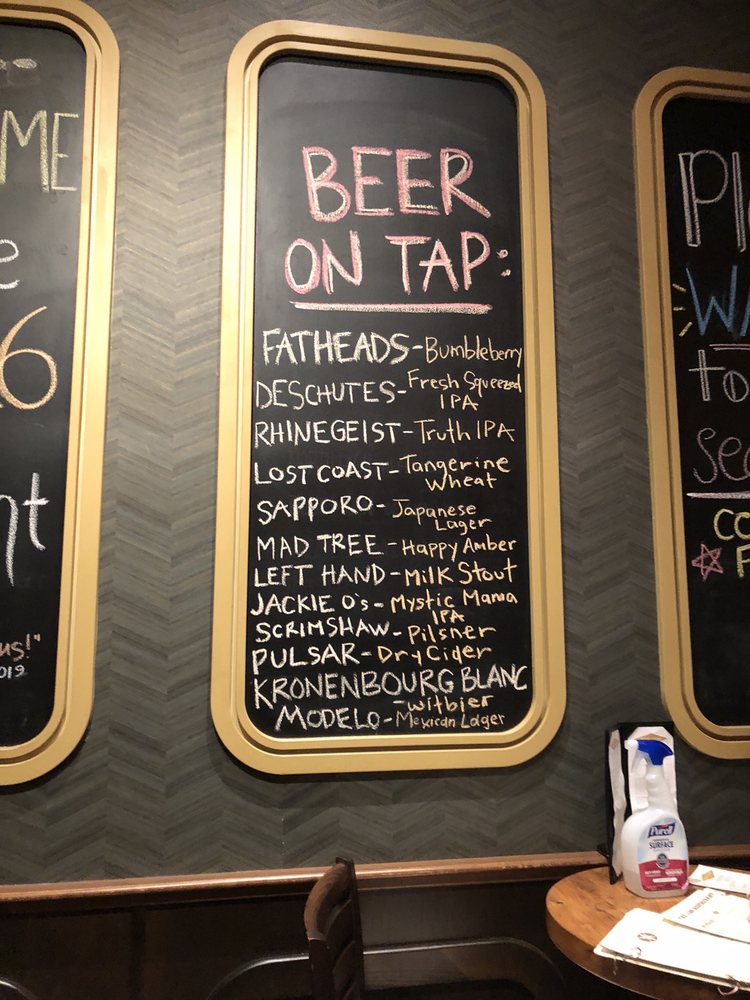 ME
e
6
nt
us!"
019
BEER
ON TAP:
FATHEADS-Bumbleberry
DESCHUTES-Fresh Squeezed
IPA
RHINEGEIST-Truth IPA
LOST COAST-Tangerine
Wheat
SAPPORO-Japanese
Lager
MAD TREE-Happy Amber
LEFT HAND-Milk Stout
JACKIE O's-Mystic Mama
IPA
SCRIMSHAW-Pilsner
PULSAR-Dry Cider
KRONENBOURG BLANC
-witbier
MODELO-Mexican Lager
Pl
to
sea
CO
F
PURELL
SURFACE